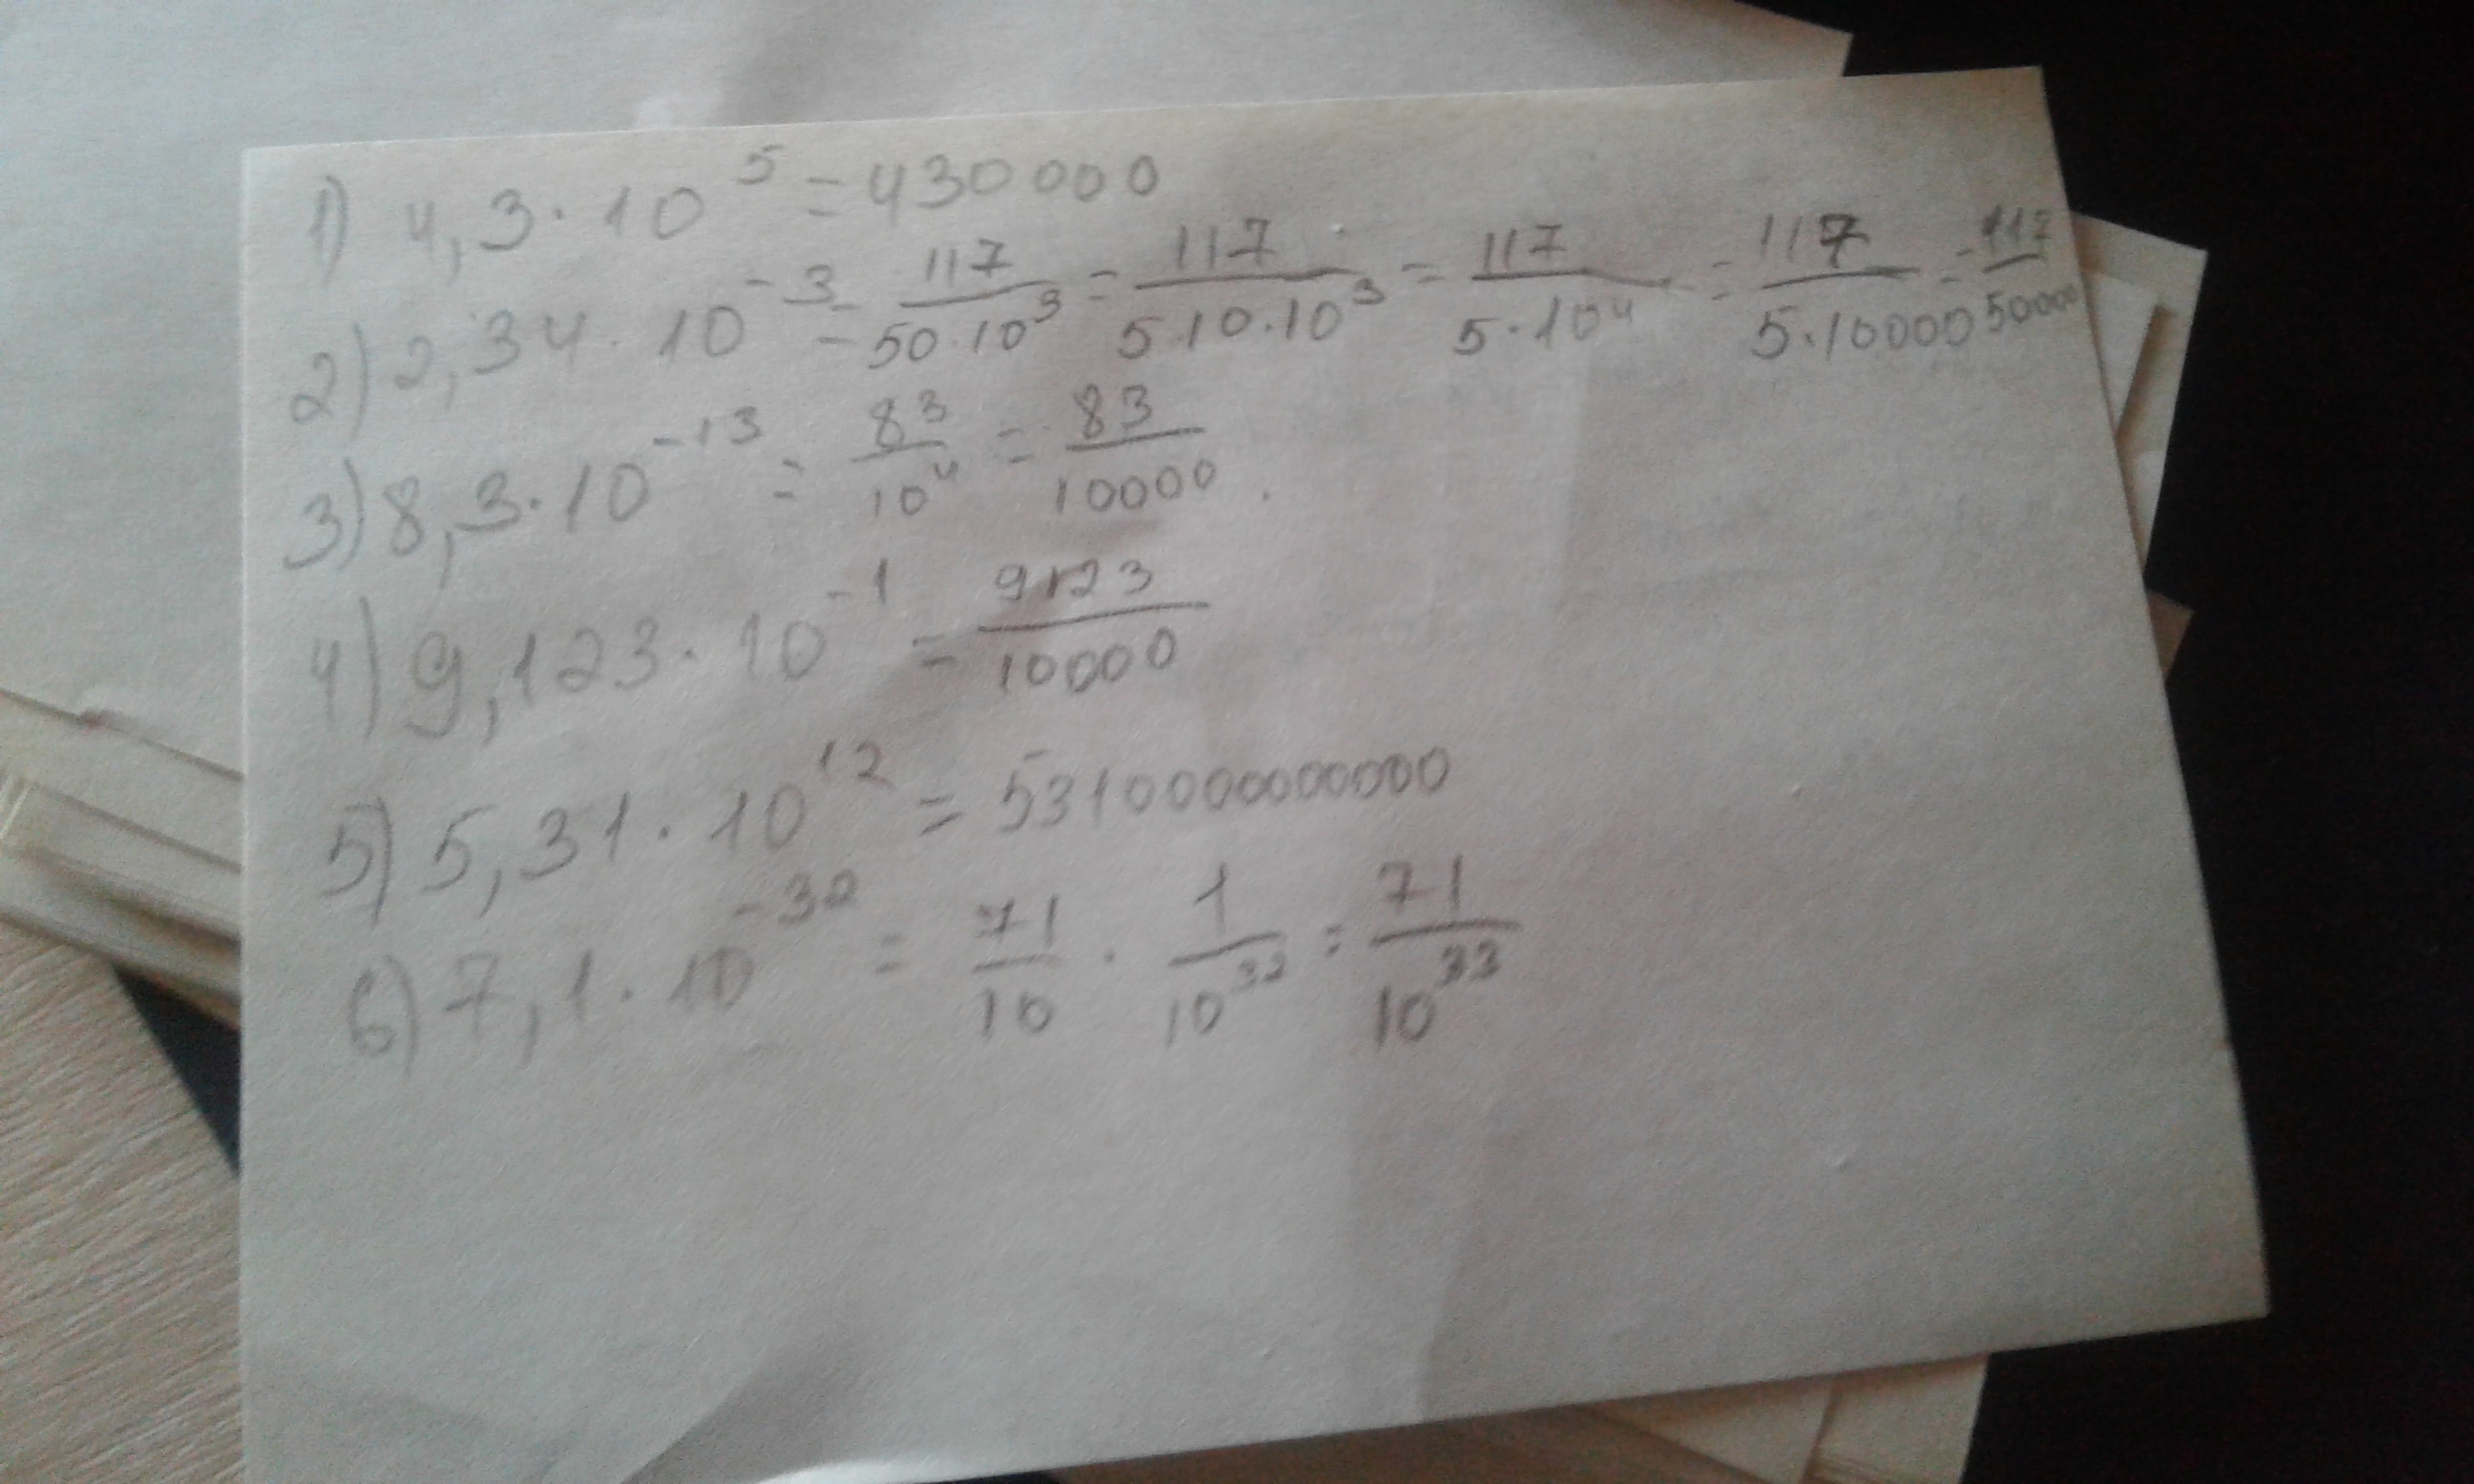 1) 4,3·10^5 = 430000
2) 2,34·10^-3 = 117/(50·10^3) = 117/(5·10·10^3) = 117/(5·10^4) = 117/(5·10000) = 117/50000
3) 8,3·10^-13 = 83/10^4 = 83/10000.
4) 9,123·10^-1 = 9123/10000
5) 5,31·10^12 = 5310000000000
6) 7,1·10^-32 = 71/10 · 1/10^32 = 71/10^33